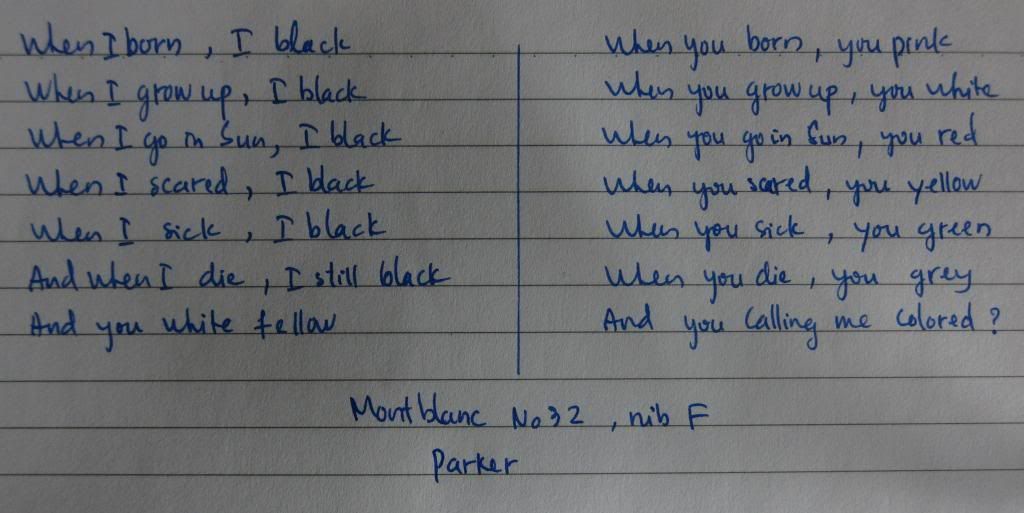 When I born, I black
When I grow up, I black
When I go in Sun, I black
When I scared, I black
When I sick, I black
And when I die, I still black
And you white fellow
When you born, you pink
When you grow up, you white
When you go in Sun, you red
When you scared, you yellow
When you sick, you green
When you die, you grey
And you calling me colored?
Montblanc No 32, nib F
Parker